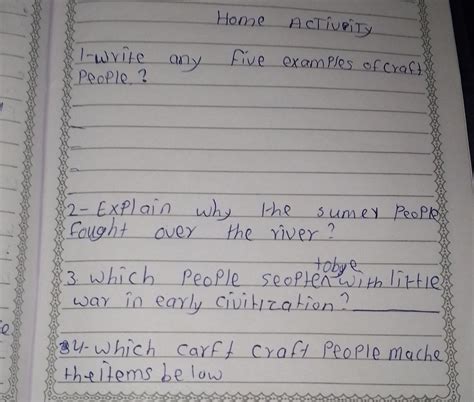 Home ACTiveiTy
1-write any five examples of craft
People?
2- Explain why the sumer People
fought over the river?
tobye
3. which People seopten with little
war in early civitization?
34-which carft craft People mache
the items below